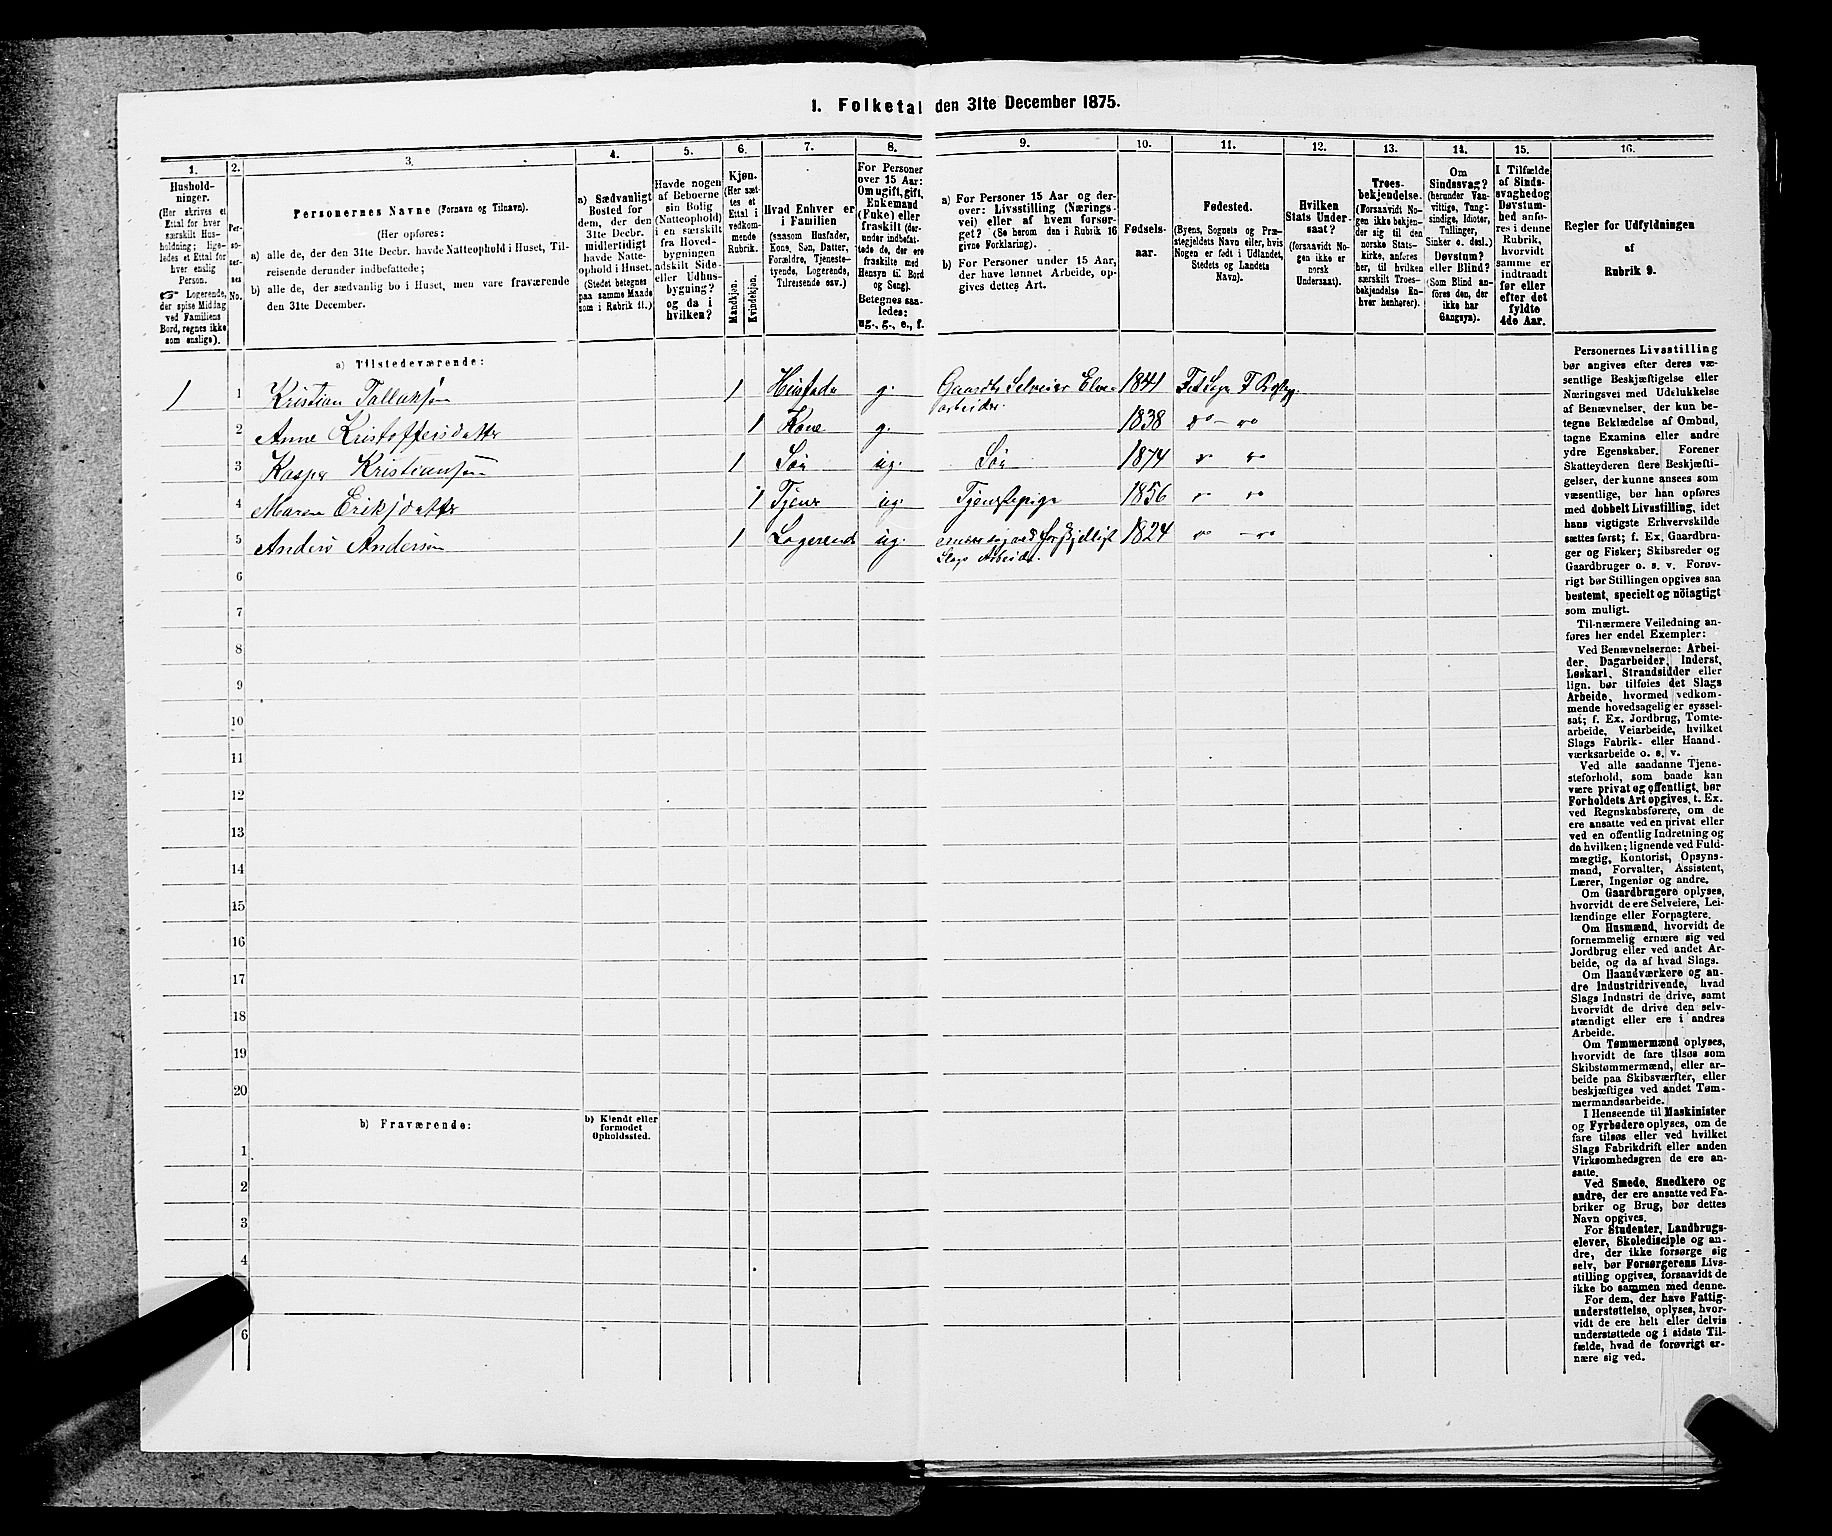 1. Folketal den 31te December 1875.
1. 2. 3. 4. 5. 6. 7. 8. 9. 10. 11. 12. 13. 14. 15. 16.
Hushold-
ninger.
(Her skrives et
Ettal for hver
særskilt Hus-
holdning; lige-
ledes et Ettal for
hver enslig
Person.
☞ Logerende,
der spise Middag
ved Familiens
Bord, regnes ikke
som enslige).
Per-
so-
ner-
nes
No.
Personernes Navne (Fornavn og Tilnavn).
(Her opføres:
a) alle de, der den 31te Decbr. havde Natteophold i Huset, Til-
reisende derunder indbefattede;
b) alle de, der sædvanlig bo i Huset, men vare fraværende
den 31te December.
a) Sædvanligt
Bosted for
dem, der den
31te Decbr.
midlertidigt
havde Natte-
ophold i Huset.
(Stedet betegnes
paa samme Maade
som i Rubrik 11.)
Havde nogen
af Beboerne
sin Bolig
(Natteophold)
i en særskilt
fra Hoved-
bygningen
adskilt Side-
eller Udhus-
bygning?
og da i
hvilken?
Kjøn.
(Her sæt-
tes et
Ettal i
vedkom-
mende
Rubrik.
Mandkjøn.
Kvindekjøn.
Hvad Enhver er
i Familien
(saasom Husfader,
Kone, Søn, Datter,
Forældre, Tjeneste-
tyende, Logerende,
Tilreisende osv.)
For Personer
over 15 Aar:
Om ugift, gift,
Enkemand
(Enke) eller
fraskilt (der-
under indbefat-
tede de, der ere
fraskilte med
Hensyn til Bord
og Seng).
Betegnes saa-
ledes:
ug., g., e., f.
a) For Personer 15 Aar og der-
over: Livsstilling (Nærings-
vei) eller af hvem forsør-
get? (Se herom den i Rubrik 16
givne Forklaring).
b) For Personer under 15 Aar,
der have lønnet Arbeide, op-
gives dettes Art.
Fødsels-
aar.
Fødested.
(Byens, Sognets og Præ-
stegjeldets Navn eller, hvis
Nogen er født i Udlandet,
Stedets og Landets
Navn).
Hvilken
Stats Under-
saat?
(forsaavidt No-
gen ikke er
norsk
Undersaat).
Troes-
bekjendelse.
(Forsaavidt No-
gen ikke bekjen-
der sig til den
norske Stats-
kirke, anføres
her, til hvilken
særskilt Troes-
bekjendelse En-
hver henhører).
Om
Sindssvag?
(herunder Van-
vittige, Tung-
sindige, Idioter,
Tullinger,
Sinker o. desl.)
Døvstum?
eller Blind?
(Som Blind an-
føres den, der
ikke har
Gangsyn).
I Tilfælde
af Sinds-
svaghed og
Døvstum-
hed anfø-
res i denne
Rubrik,
hvorvidt
samme er
indtraadt
før eller
efter det
fyldte
4de Aar.
Regler for Udfyldningen
af
Rubrik 9.
a) Tilstedeværende:
1 1 Kristian Tallaksen 1 Husfader g. Gaardb. Selveier Elve- 1841 Fet Sogn F Præstg.
arbeider.
2 Anne Kristoffersdatter 1 Kone g. 1838 " — "
3 Kasper Kristiansen 1 Søn ug. Søn 1874 " "
4 Maren Eriksdatter 1 Tjener ug. Tjenestepige 1856 " "
5 Anders Andersen 1 Logerende ug. ernær sig ved forskjelligt 1824 " — "
Slags Arbeide.
6
7
8
9
10
11
12
13
14
15
16
17
18
19
20
b) Fraværende:
b) Kjendt eller
formodet
Opholdssted.
1
2
3
4
6
Personernes Livsstilling
bør angives efter deres væ-
sentlige Beskjæftigelse eller
Næringsvei med Udelukkelse
af Benævnelser, der kun be-
tegne Beklædelse af Ombud,
tagne Examina eller andre
ydre Egenskaber. Forener
Skatteyderen flere Beskjæfti-
gelser, der kunne ansees som
væsentlige, bør han opføres
med dobbelt Livsstilling, idet
hans vigtigste Erhvervskilde
sættes først; f. Ex. Gaardbru-
ger og Fisker; Skibsreder og
Gaardbruger o. s. v. Forøv-
rigt bør Stillingen opgives saa
bestemt, specielt og nöiagtigt
som muligt.
Til nærmere Veiledning an-
føres her endel Exempler:
Ved Benævnelserne: Arbei-
der, Dagarbeider, Inderst,
Løskarl, Strandsidder eller
lign. bør tilføies det Slags
Arbeide, hvormed vedkom-
mende hovedsagelig er syssel-
sat; f. Ex. Jordbrug, Tomte-
arbeide, Veiarbeide, hvilket
Slags Fabrik- eller Haand-
værksarbeide o. s. v.
Ved alle saadanne Tjene-
steforhold, som baade kan
være privat og offentligt, bør
Forholdets Art opgives, t. Ex.
ved Regnskabsførere, om de
ere ansatte ved en privat eller
ved en offentlig Indretning og
da hvilken; lignende ved Fuld-
mægtig, Kontorist, Opsyns-
mand, Forvalter, Assistent,
Lærer, Ingeniør og andre.
Om Gaardbrugere oplyses,
hvorvidt de ere Selveiere, Lei-
lændinge eller Forpagtere.
Om Husmænd, hvorvidt de
fornemmelig ernære sig ved
Jordbrug eller ved andet Ar-
beide, og da af hvad Slags.
Om Haandværkere og an-
dre Industridrivende, hvad
Slags Industri de drive, samt
hvorvidt de drive den selv-
stændigt eller ere i andres
Arbeide.
Om Tømmermænd oplyses,
hvorvidt de fare tilsøs som
Skibstømmermænd, eller ar-
beide paa Skibsværfter, eller
beskjæftiges ved andet Tøm-
mermandsarbeide.
I Henseende til Maskinister
og Fyrbødere oplyses, om de
fare tilsøs eller ved hvilket
Slags Fabrikdrift eller anden
Virksomhedsgren de ere an-
satte.
Ved Smede, Snedkere og
andre, der ere ansatte ved Fa-
briker og Brug, bør dettes
Navn opgives.
For Studenter, Landbrugs-
elever, Skoledisciple og an-
dre, der ikke forsørge sig
selv, bør Forsørgerens Livs-
stilling opgives, forsaavidt de
ikke bo sammen med denne.
For dem, der have Fattig-
understøttelse, oplyses, hvor-
vidt de ere helt eller delvis
understøttede og i sidste Til-
fælde, hvad de forøvrigt er-
nære sig ved.